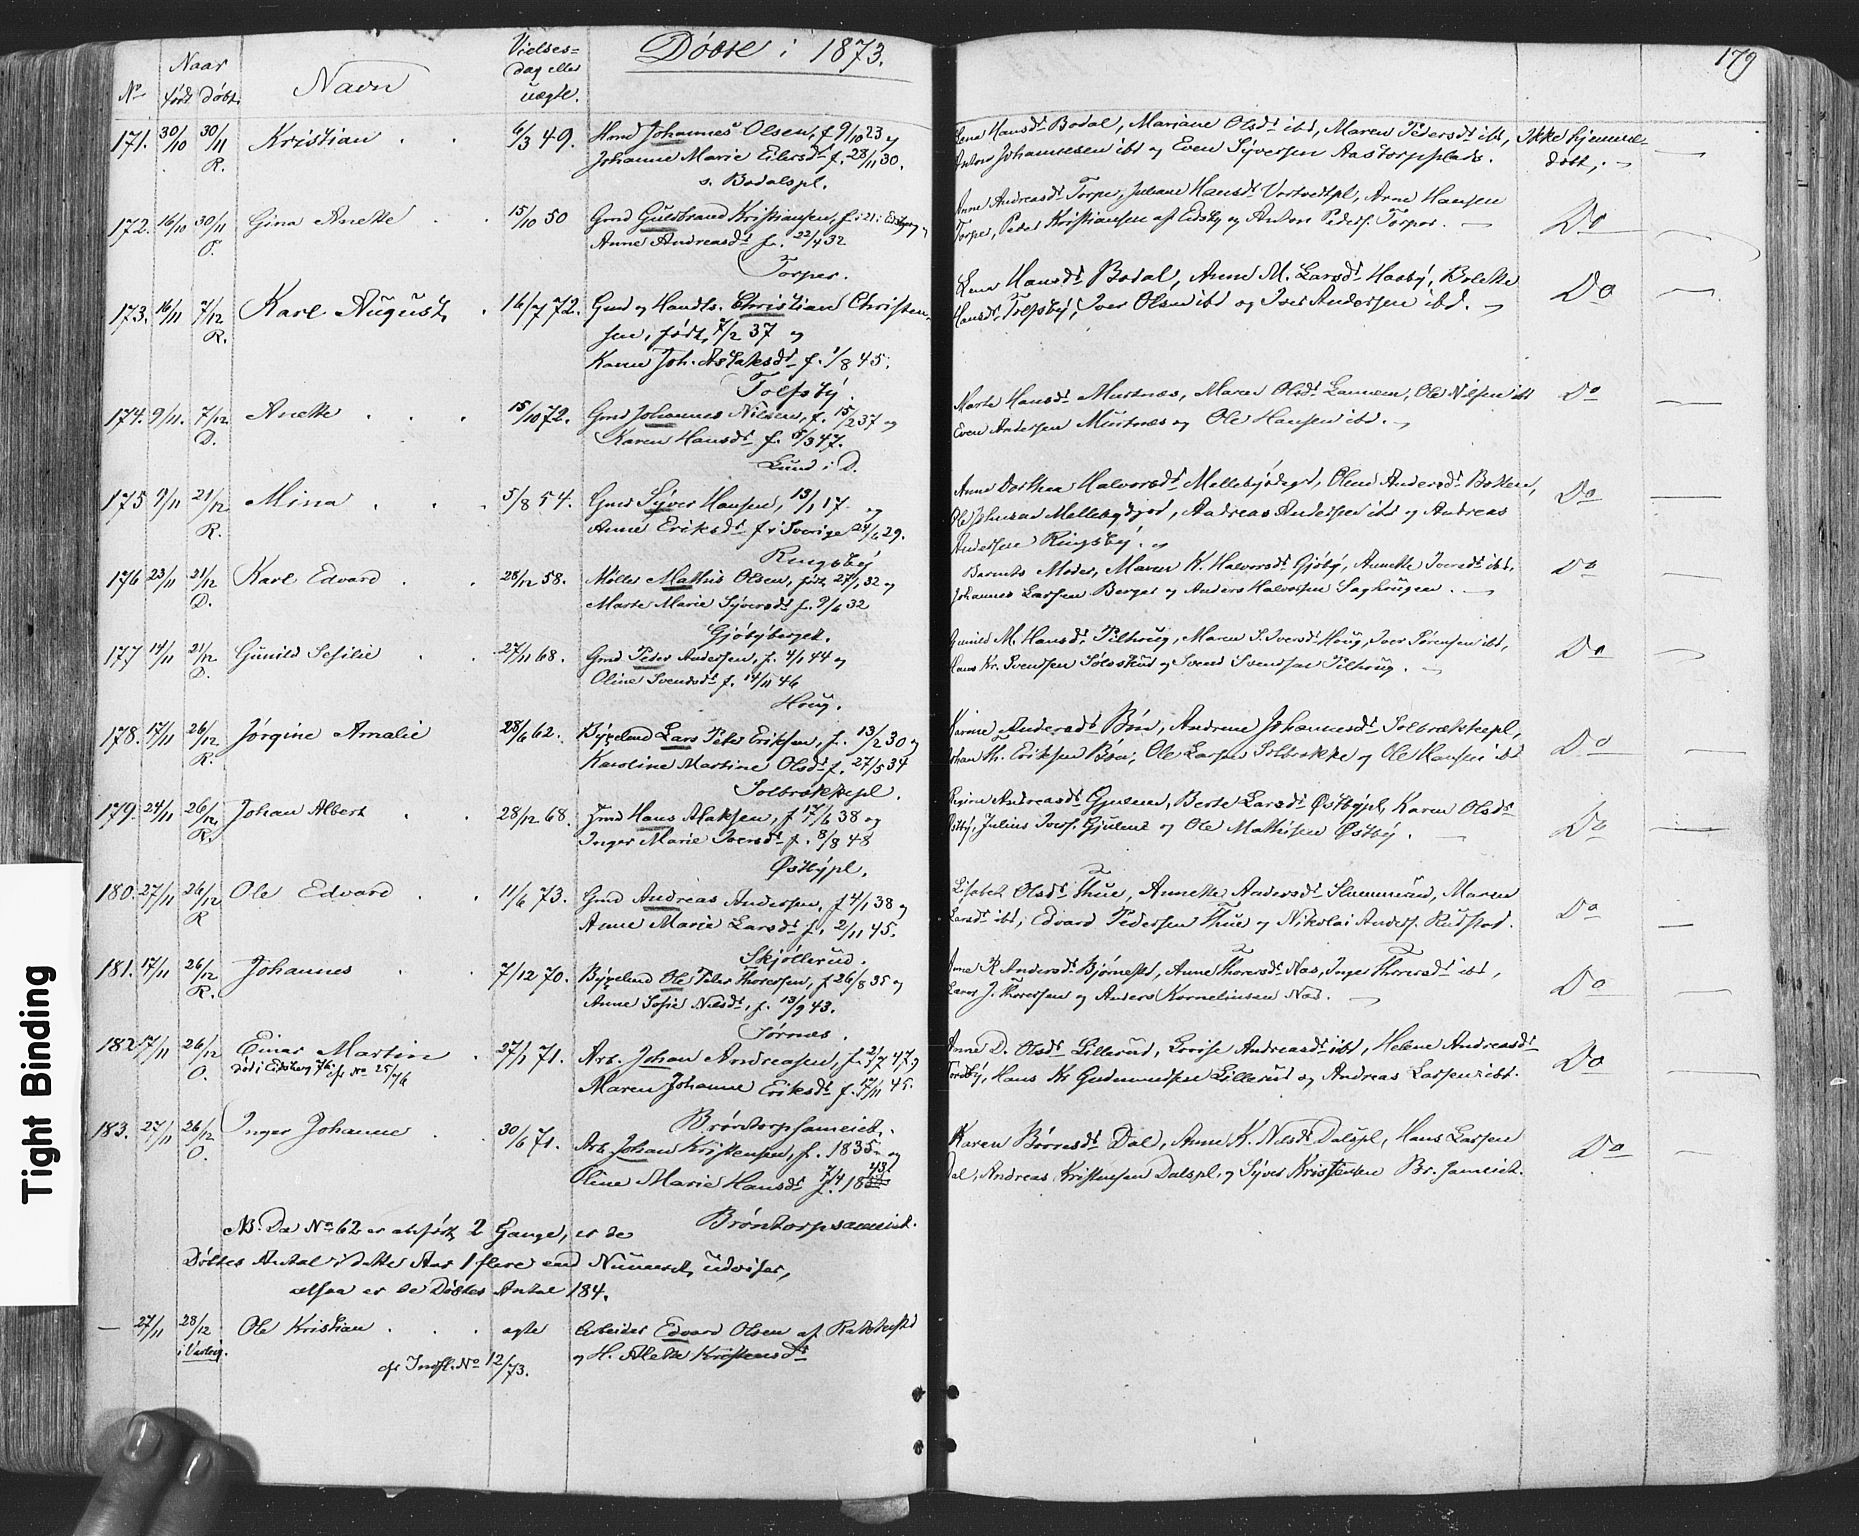 Døbte i 1873.
179
Nº
Naar
født døbt.
Navn
Vielses=
dag eller
uægte.
171. 30/10 30/11 R. Kristian 6/3 49. Gmd Johannes Olsen, f. 9/10 23 og
Johanne Marie Eilersdr f. 28/11 30.
s. Bodalspl.
Lena Hansdr Bodal, Mariane Olsdr ibd, Maren Pedersdr ibd, Ikke hjemme-
Anton Johannesen ibd og Even Syversen Aastorpplads. døbt.
172. 16/10 30/11 Gina Anette 15/10 50 Gmd Guldbrand Kristiansen, f. i 21 i Eidsberg og
Anne Andreasdr f. 22/4 32
Torper.
Anne Andreasdr Torper, Juliane Hansdr Vortvedtpl, Arne Hansen
Torper, Peder Kristiansen af Eidsbg og Anton Peders. Torper. Do
173. 16/11 7/12 R. Karl August 16/7 72. Gmd og Handls. Christian Christen-
sen, født 7/2 37 og
Karen Joh. Aslaksdr f. 1/8 45.
Tolfsby.
Lena Hansdr Bodal, Anne M. Larsdr Haaby, Bolette
Hansdr Tolfsby, Iver Olsen ibd og Iver Andersen ibd. Do
174. 9/11. 7/12 D. Anette 15/10 72. Gmd Johannes Nilsen, f. 15/2 37 og
Karen Hansdr f. 5/3 47.
Lund i D.
Marte Hansdr Murtnæs, Maren Olsdr, Ole Nilsen ibd
Even Andersen Murtnæs og Ole Hansen ibd. Do
175 9/11 21/12 R. Mina 5/8 54. Gmd Syver Hansen, 13/1 17 og
Anne Eriksdr f. i Sverige 24/6 29.
Ringsby
Anne Dorthea Halvorsdr Mellebydegd, Olene Andersdr Botten,
Ole Johnsen Mellebydgrd, Andreas Andersen ibd og Andreas
Andersen Ringsby. Do
176 23/11 21/12 D. Karl Edvard 28/12 58. Møller Mathis Olsen, født 27/1 32 og
Marte Marie Syversdr f. 9/6 32
Gjøbyberget.
Barnets Moder, Maren K. Halvorsdr Gjøby, Annette Iversdr ibd,
Johannes Larsen Berget og Anders Halvorsen Saghaugen. Do
177 14/11 21/12 D. Gunild Sesilie 27/11 68. Gmd Peder Andersen, f. 4/1 44 og
Oline Svendsdr f. 14/11 46
Houg.
Gunild M. Hansdr Tilhaug, Maren S. Iversdr Houg, Iver Sørensen ibd,
Hans Kr. Svendsen og Svend Svendsen Tilhaug. Do
178. 17/11 26/12 R. Jørgine Amalie 28/6 62. Bygselmd Lars Peter Eriksen, f. 13/2 30 og
Karoline Martine Olsdr f. 27/5 34
Solbrækkepl.
Karine Andersdr Bøn, Andrine Johannesdr Solbrækkepl,
Johan M. Eriksen Bøn, Ole Larsen Solbrække og Ole Hansen ibd Do
179. 24/11 26/12 R. Johan Albert 28/12 68. Jmd Hans Aslaksen, f. 17/6 38 og
Inger Marie Iversdr f. 8/8 48
Østbypl.
Regine Andreasdr Gjulem, Berte Larsdr Østbypl, Karen Olsdr
Østby, Julius Ivers. Gjulem og Ole Mathisen Østby. Do
180. 27/11 26/12 R Ole Edvard 11/6 73. Gmd Andreas Andersen, f. 4/1 38 og
Anne Marie Larsdr f. 2/11 45.
Skjøllerud.
Lisabet Olsdr Thue, Annette Andersdr, Maren
Larsdr ibd, Edvard Pedersen Thue og Nikolai Anders. Rudstad. Do
181. 17/11 26/12 R. Johannes 7/12 70. Bygselmd Ole Peter Thoresen, f 26/8 35 og
Anne Sofie Nilsdr, f. 13/9 43.
Tørnæs.
Anne R Andersdr Bjørnestd, Anne Thoresdr Næs, Inger Thoresdr ibd,
Lars J. Thoresen og Anders Kornelinsen Næs. Do
182 17/11 26/12 O. Einar Martin 27/1 71. Arb. Johan Andreasen, f. 2/7 47 og
død i Eidsberg 76 cfr No 25/76
Maren Johanne Eriksdr f. 17/11 45.
Brøntorpsameiet.
Anne D. Olsdr Lillerud, Lovise Andreasdr ibd, Helene Andreasdr
Tordby, Hans Kr Gudmundsen Lillerud og Andreas Larsen ibd. Do
183. 27/11 26/12 O. Inger Johanne 30/6 71. Arb. Johan Kristensen, f. 1835 og
Oline Marie Hansdr f. 7/4 1843
Brøntorpsameiet.
Karen Børresdr Dal, Anne K. Nilsdr Dalspl, Hans Larsen
Dal, Andreas Kristensen Dalspl. og Syver Kristensen Br. sameiet. Do
NB. Da No 62 er anført 2 Gange, er de
Døbtes Antal i dette Aar 1 flere end Numeret udviser,
altsaa er de Døbtes Antal 184.
— 27/11 28/12 i Varteig. Ole Kristian ægte Arbeider Edvard Olsen af Rakkestd
og H. Alette Kristensdr
cfr Indfl. No 12/73.
Tight Binding